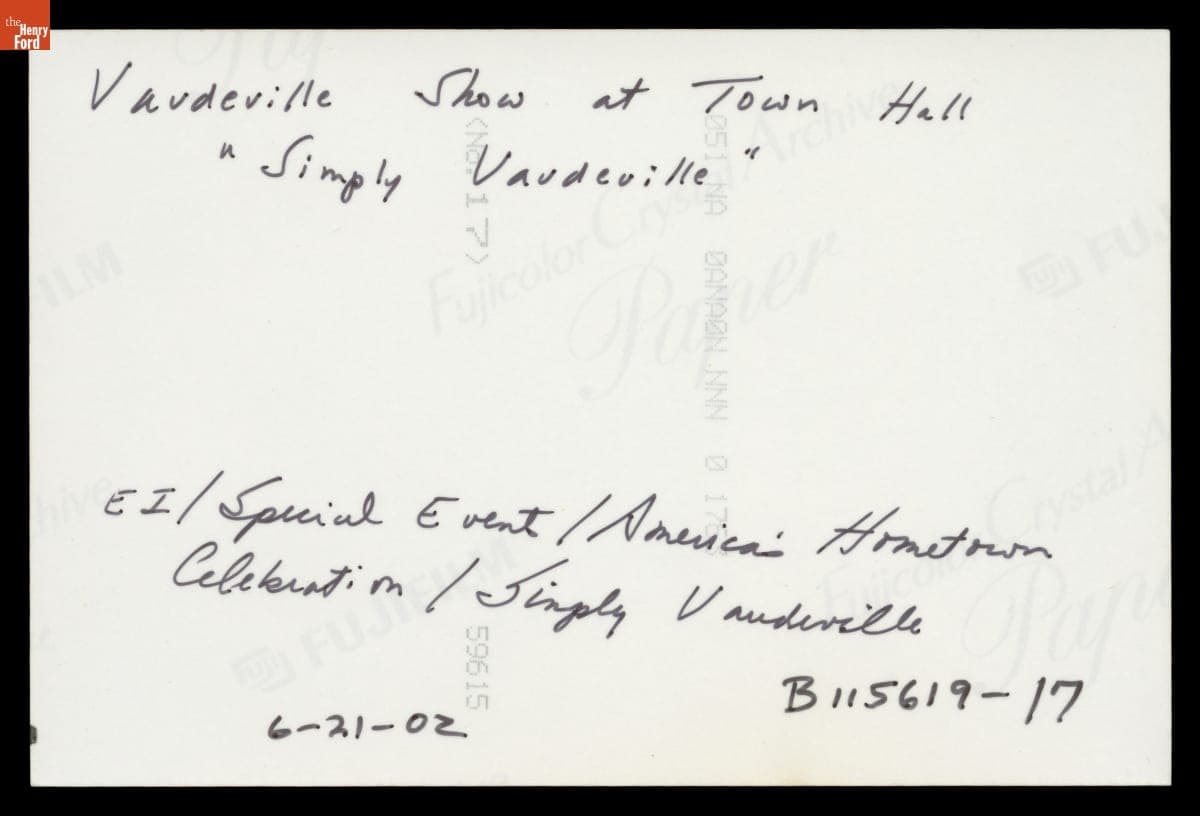 the Henry Ford
Vaudeville Show at Town Hall
"Simply Vaudeville"
<No.17>
051 NA 0ANA0N.NNN 0 1763
ILM
Fujicolor Crystal Archive
Paper
FUJI FU
hive
EI/Special Event/America's Hometown
Celebration/Simply Vaudeville
Crystal A
Fujicolor
Paper
FUJI FUJIFILM
59615
B115619-17
6-21-02